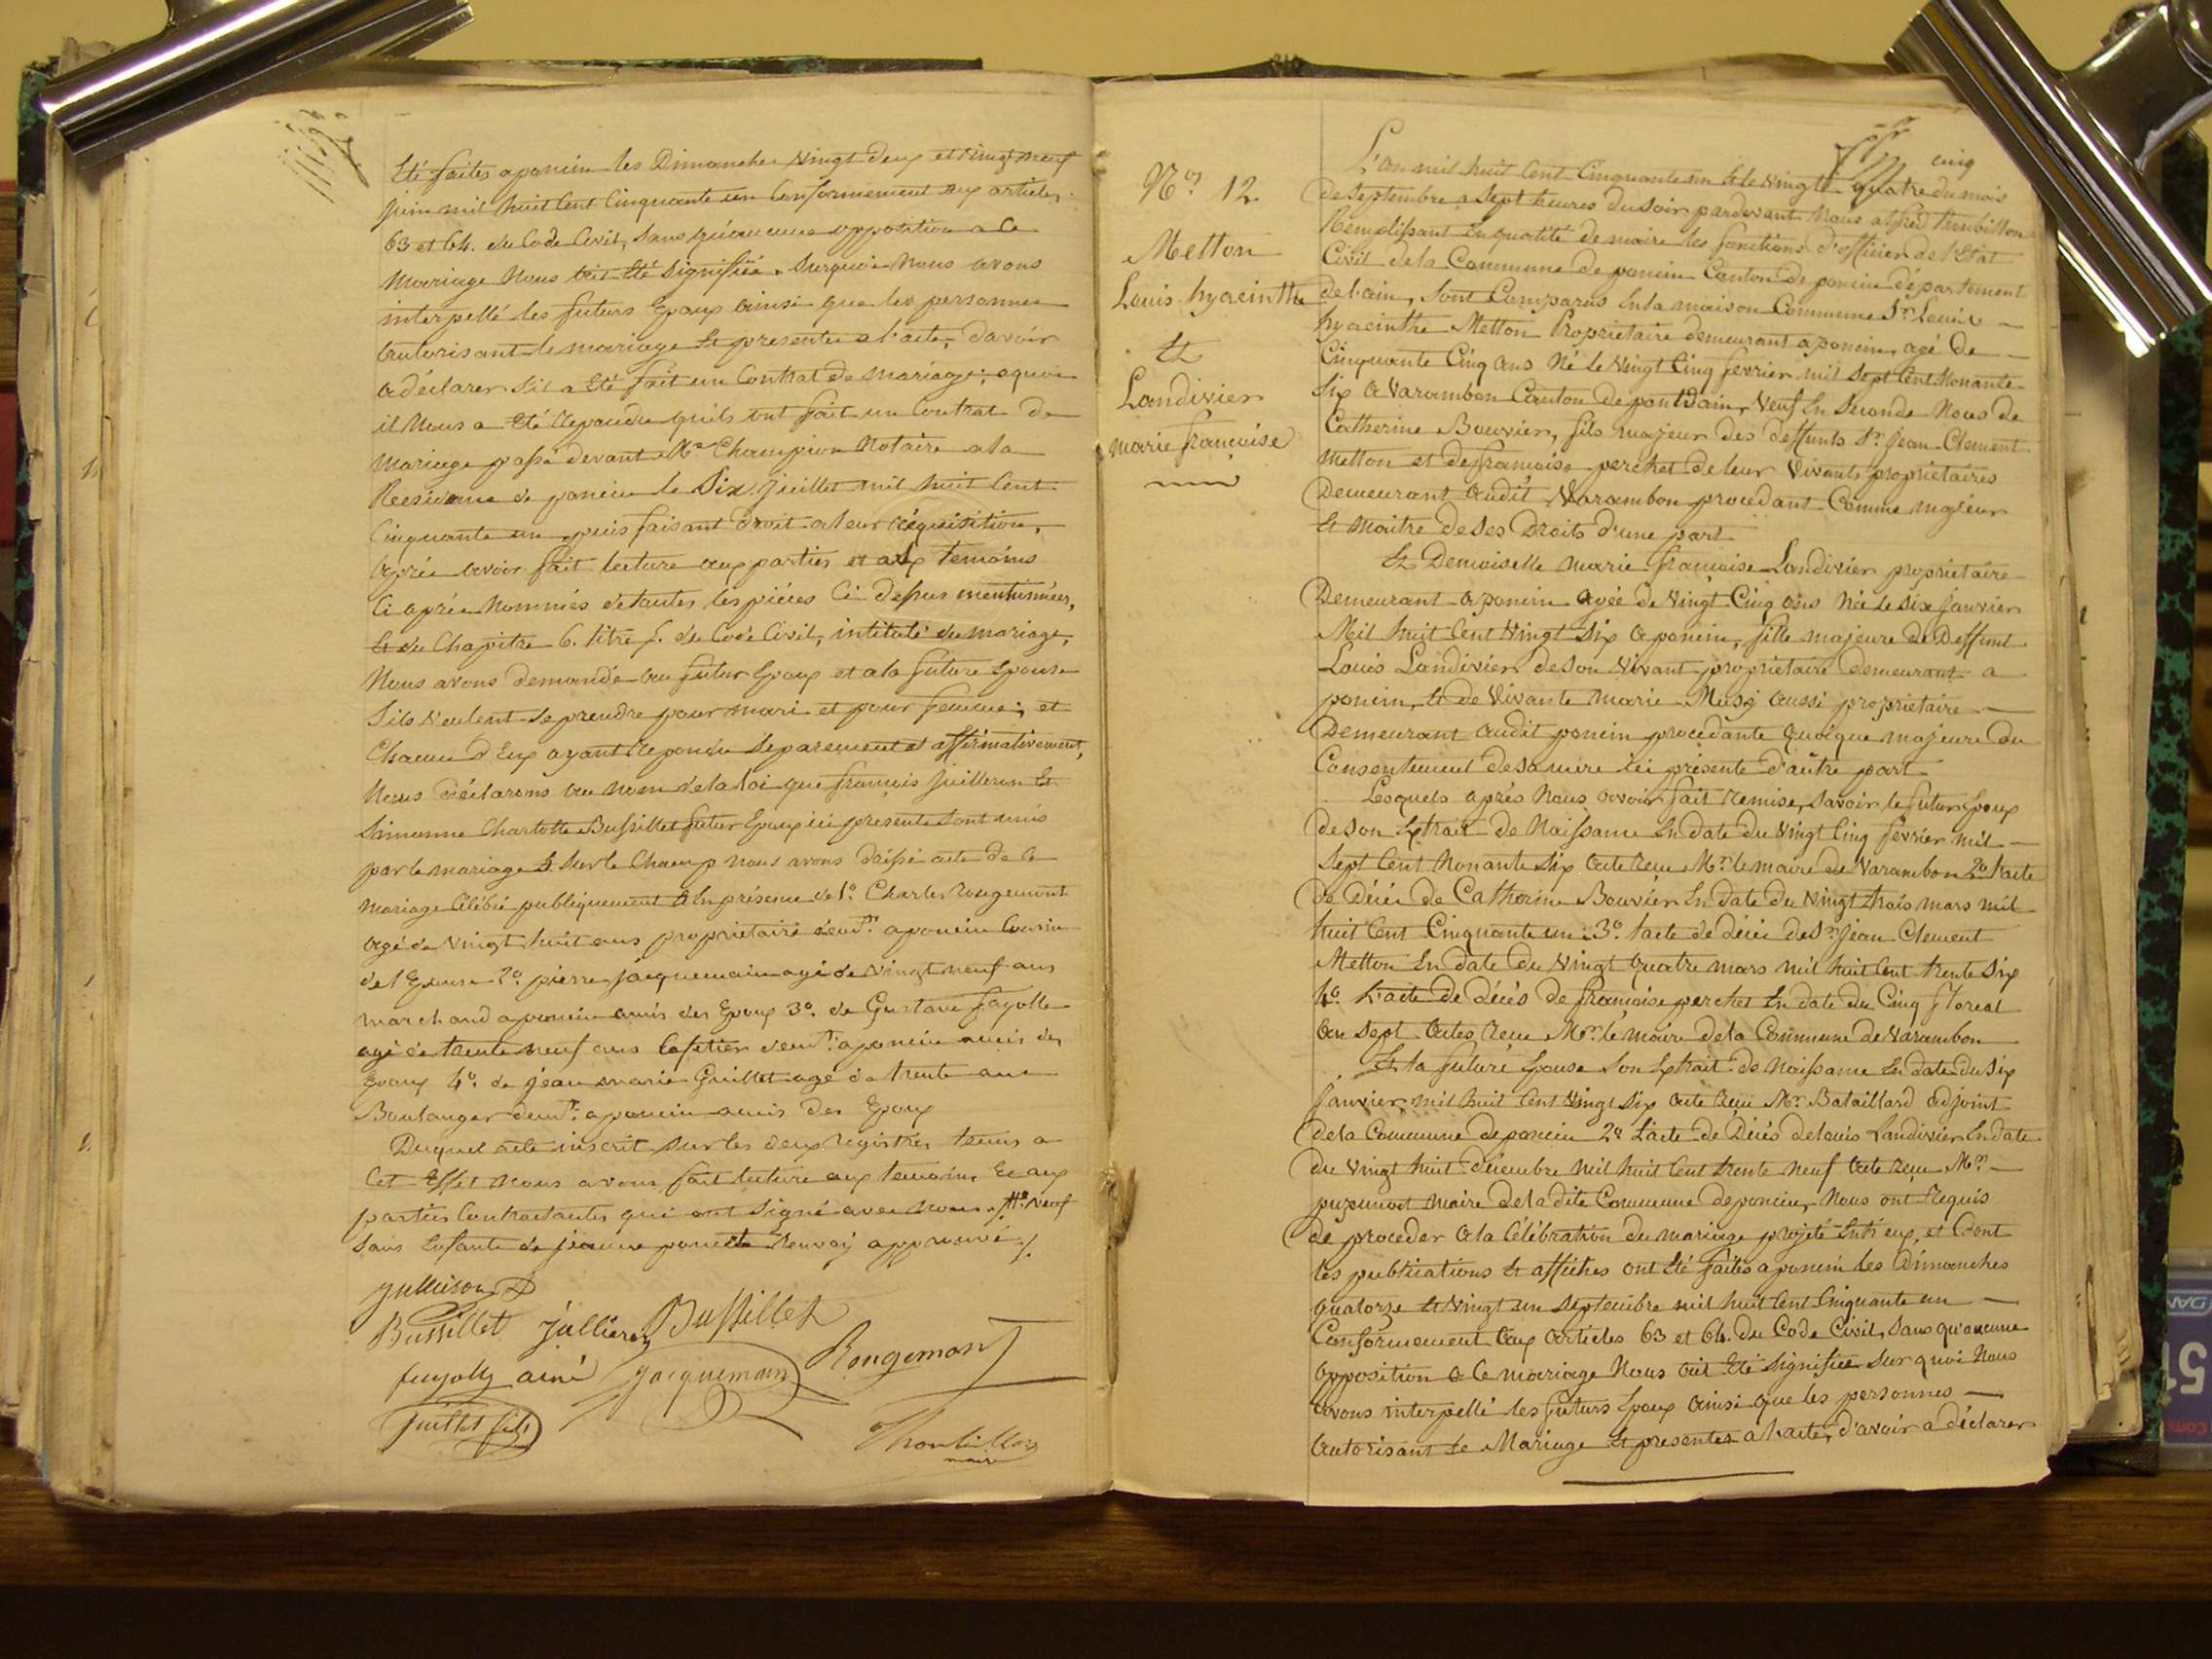 Eté faites a poncin les Dimanches Vingt deux et Vingt neuf
juin mil huit Cent Cinquante un Conformement aux articles
63 et 64. du Code Civil, Sans qu'aucune opposition a ce
mariage Nous ait Eté Signifiée. Surquoi Nous avons
interpellé les futurs Epoux ainsi que les personnes
autorisant le mariage Et presentes a l'acte, d'avoir
a déclarer S'il a Eté fait un Contrat de mariage; aquoi
il Nous a Eté repondu quils ont fait un Contrat de
mariage passé devant Me Champion Notaire a la
Residence de poncin le Six Juillet mil huit Cent
Cinquante un, puis faisant droit a leur réquisition,
après avoir fait lecture aux parties et aux temoins
Ci après Nommés de toutes les pièces Ci dessus mentionnées,
Et du Chapitre 6. titre 5. du Code Civil, intitulé du mariage,
Nous avons demandé au futur Epoux et a la future Epouse
S'ils veulent se prendre pour mari et pour femme; et
Chacun d'Eux ayant repondu Separement et affirmativement,
Nous déclarons au nom de la loi que françois Juilleron Et
Simonne Charlotte Bussillet futur Epoux ici presents Sont unis
par le mariage Et Sur le Champ nous avons dressé acte de ce
mariage Célébré publiquement Et En présence de 1o. Charles rougemont
agé de Vingt huit ans propriétaire demt. a poncin Cousin
de l'Epouse 2o. pierre jacquemain agé de Vingt neuf ans
marchand a poncin amis des Epoux 3o. de Gustave fayolle
agé de trente neuf ans Cafetier demt. a poncin amis des
Epoux 4o. de jean marie Guillet agé de trente ans
Boulanger demt. a poncin amis des Epoux
Duquel acte inscrit sur les deux registres tenus a
Cet Effet Nous avons fait lecture aux temoins Et aux
parties Contractantes qui ont Signé avec nous. neuf
Sans renvoi approuvé
Bussillet Bussillet
fayolle ainé Jacquemain Rougemont
Guillet fils Thonbillon
maire
cinq
L'an mil huit Cent Cinquante un Et le Vingt quatre du mois
de Septembre a Sept heures du Soir pardevant Nous alfred
Remplissant En qualité de maire les fonctions d'officier de l'Etat
Civil de la Commune de poncin Canton de poncin département
de l'ain, Sont Comparus En la maison Commune Sr. Louis
hyacinthe Metton Propriétaire demeurant a poncin, agé de
Cinquante Cinq ans Né le Vingt Cinq fevrier mil Sept Cent Nonante
Six a Varambon Canton de pontdain, Veuf En Seconde Noces de
Catherine Bouvier, fils majeur des deffunts Sr. Jean Clement
Metton et de françoise perchet de leur Vivants propriétaires
Demeurant audit Varambon procédant Comme majeur
Et maitre de Ses Droits d'une part
Et Demoiselle marie françoise Landivier propriétaire
Demeurant a poncin agée de Vingt Cinq ans Née le Six Janvier
Mil huit Cent Vingt Six a poncin, fille majeure de Deffunt
Louis Landivier de Son Vivant propriétaire Demeurant a
poncin, Et de Vivante Marie Musy aussi propriétaire
Demeurant audit poncin procédante quoique majeure du
Consentement de Sa mère ici présente d'autre part
Lesquels après Nous avoir fait remise, Savoir le futur Epoux
de Son Extrait de Naissance En date du Vingt Cinq fevrier mil
Sept Cent Nonante Six acte reçu Mr. le maire de Varambon 2o l'acte
de Décès de Catherine Bouvier En date du Vingt trois mars mil
huit Cent Cinquante un. 3o. l'acte de décès de Sr. Jean Clement
Metton En date du Vingt quatre mars mil huit Cent trente Six
4o. l'acte de décès de françoise perchet En date du Cinq floreal
an Sept actes reçu Mr. le maire de la Commune de Varambon
Et la future Epouse Son Extrait de Naissance En date du Six
Janvier mil huit Cent Vingt Six acte reçu Mr. Bataillard adjoint
de la Commune de poncin 2o L'acte de Décès de louis Landivier En date
du Vingt huit décembre mil huit Cent trente neuf acte reçu Mr.
maire de la dite Commune de poncin, Nous ont requis
de proceder a la Célébration du mariage projété Entr'eux, et dont
les publications Et affiches ont Eté faites a poncin les Dimanches
quatorze Et Vingt un Septembre mil huit Cent Cinquante un
Conformement aux articles 63 et 64. du Code Civil, Sans qu'aucune
opposition a ce mariage Nous ait Eté Signifiée Sur quoi Nous
avons interpellé les futurs Epoux ainsi que les personnes
autorisant le Mariage Et presentes a l'acte, d'avoir a déclarer
Nos 12
Metton
Louis hyacinthe
Et
Landivier
marie françoise